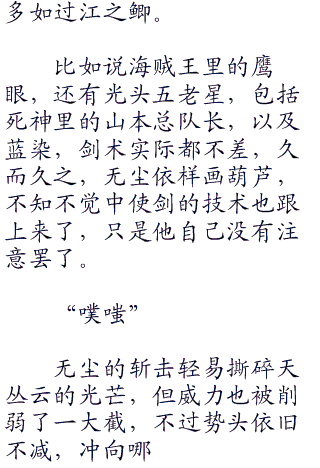 多如过江之鲫。
比如说海贼王里的鹰
眼，还有光头五老星，包括
死神里的山本总队长，以及
蓝染，剑术实际都不差，久
而久之，无尘依样画葫芦，
不知不觉中使剑的技术也跟
上来了，只是他自己没有注
意罢了。
“噗嗤”
无尘的斩击轻易撕碎天
丛云的光芒，但威力也被削
弱了一大截，不过势头依旧
不减，冲向哪